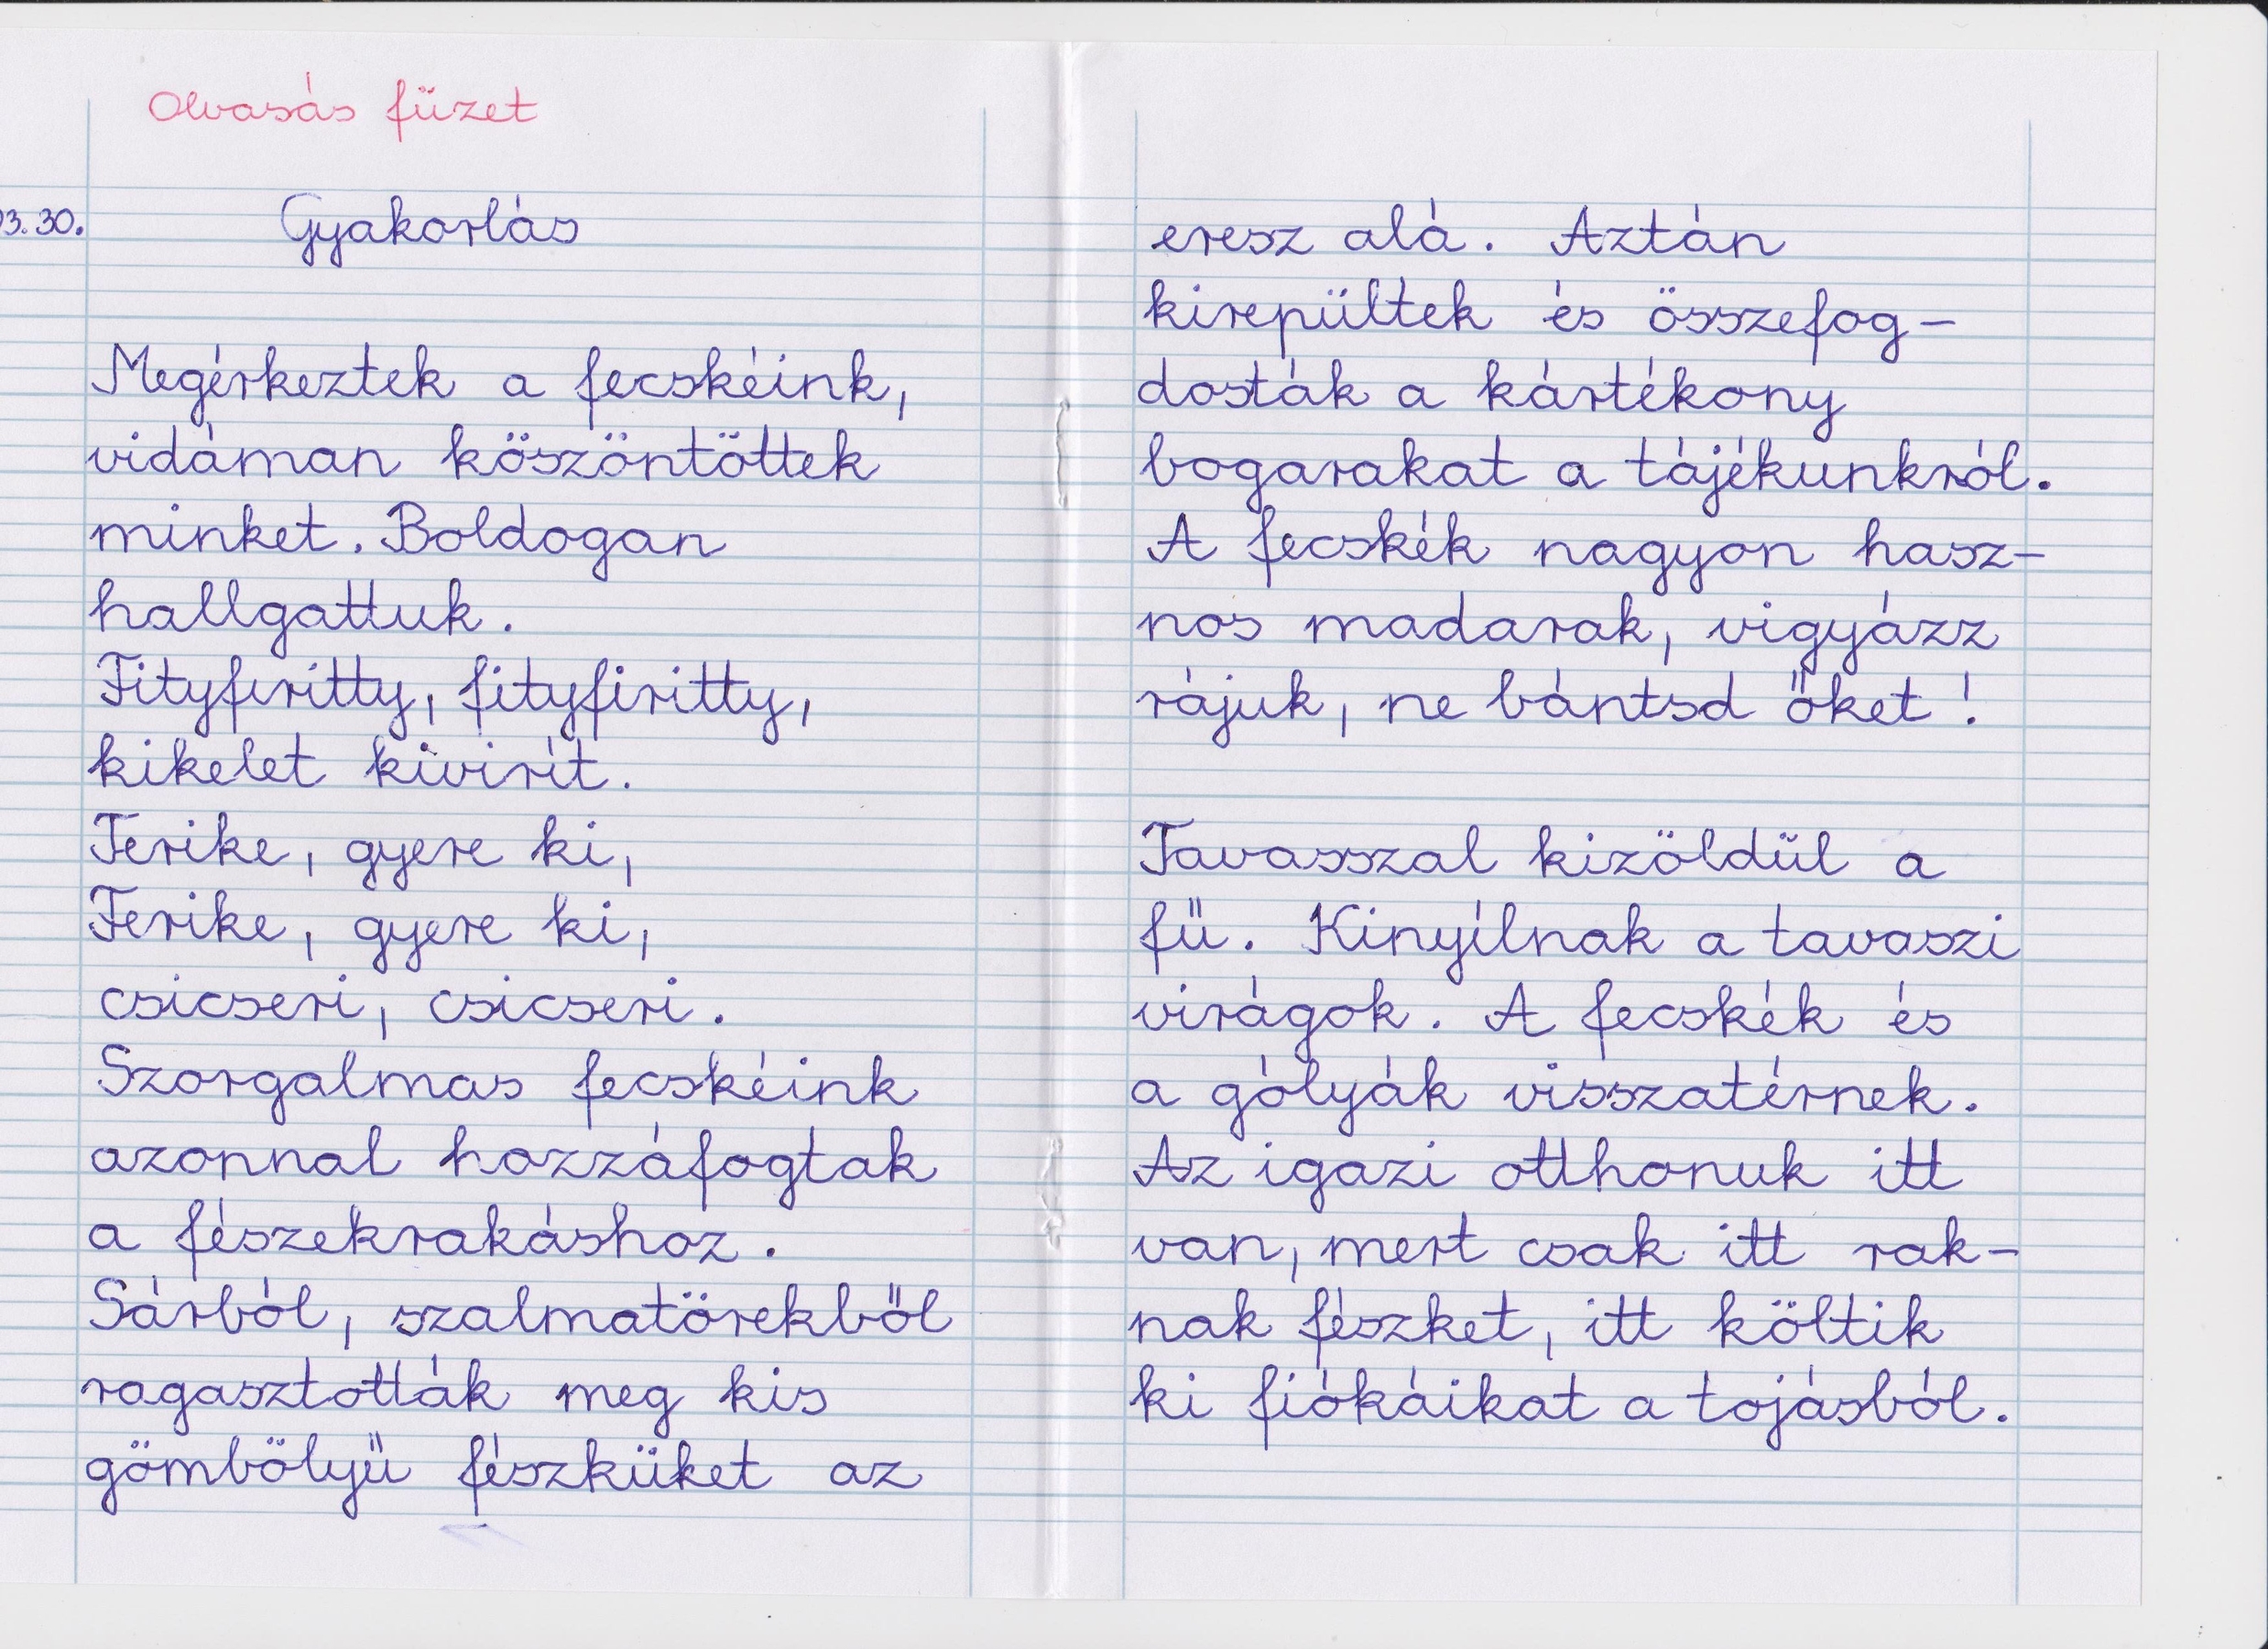 Olvasás füzet
03.30. Gyakorlás
Megérkeztek a fecskéink,
vidáman köszöntöttek
minket. Boldogan
hallgattuk.
Fityfiritty, fityfiritty,
kikelet kivirít.
Terike, gyere ki,
Ferike, gyere ki,
csicseri, csicseri.
Szorgalmas fecskéink
azonnal hozzáfogtak
a fészekrakáshoz.
Sárból, szalmatörekből
ragasztották meg kis
gömbölyű fészküket az
eresz alá. Aztán
kirepültek és összefog-
dosták a kártékony
bogarakat a tájékunkról.
A fecskék nagyon hasz-
nos madarak, vigyázz
rájuk, ne bántsd őket!
Tavasszal kizöldül a
fű. Kinyílnak a tavaszi
virágok. A fecskék és
a gólyák visszatérnek.
Az igazi otthonuk itt
van, mert csak itt rak-
nak fészket, itt költik
ki fiókáikat a tojásból.